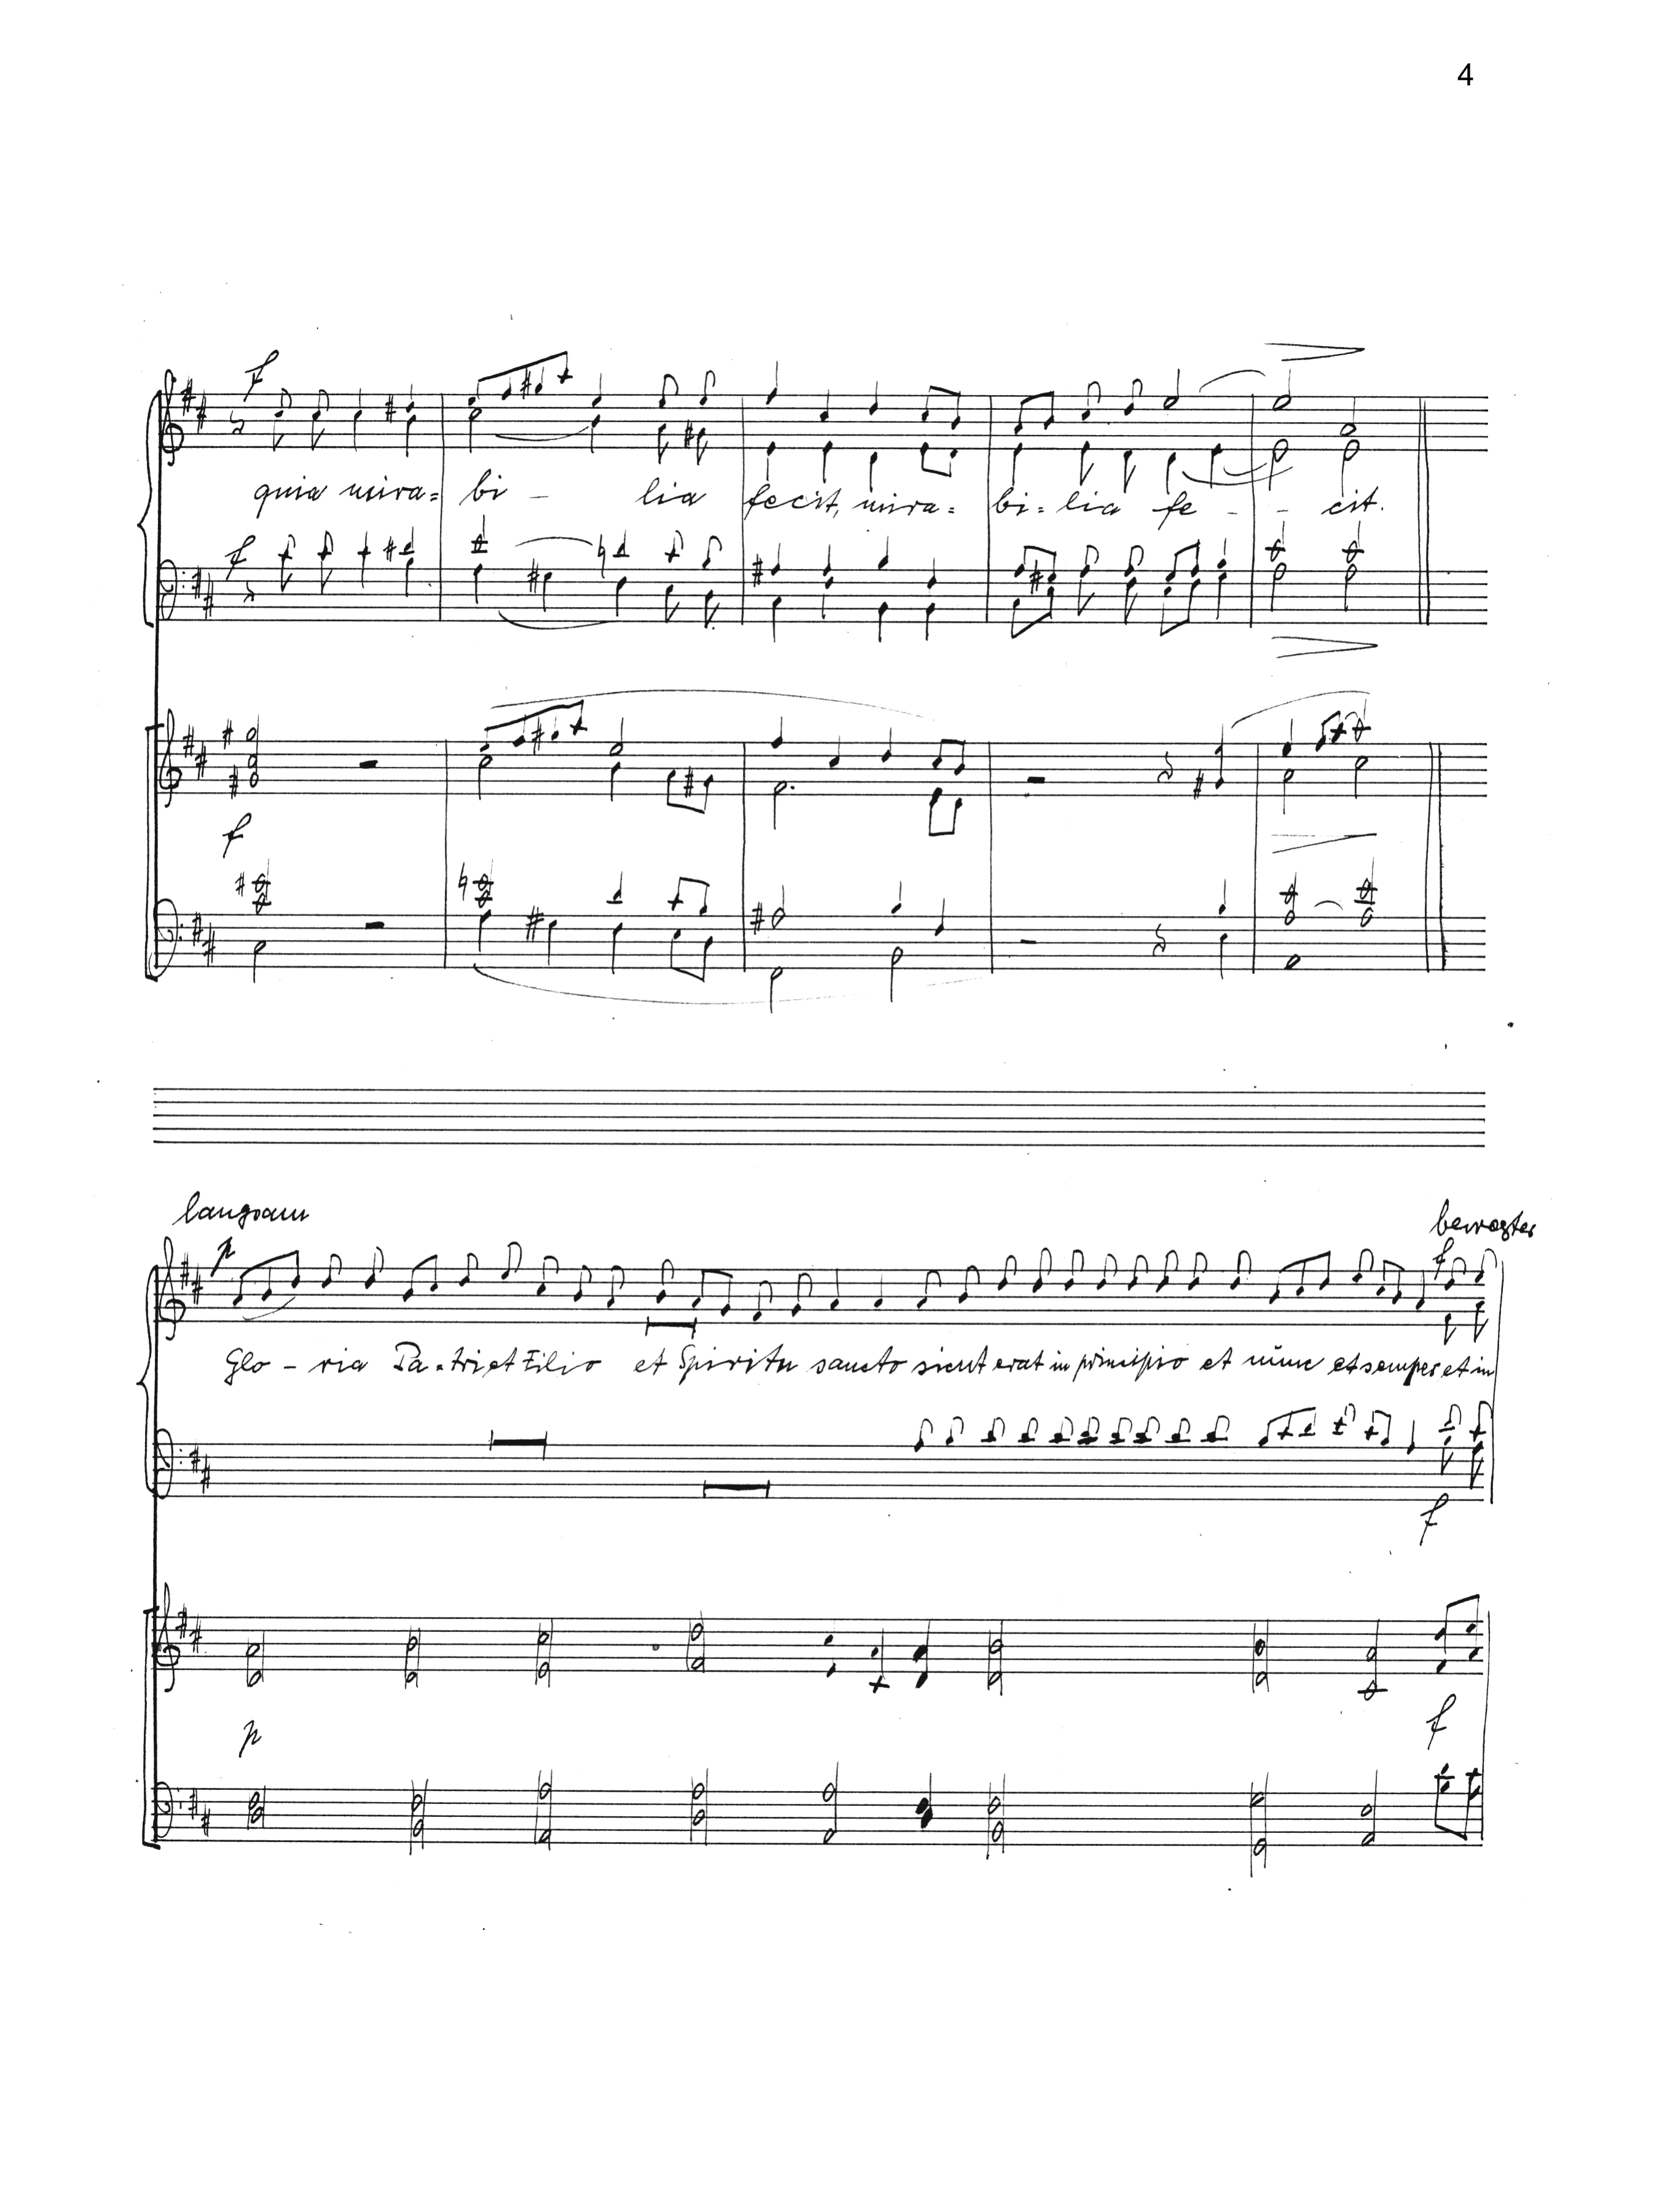 4
f
quia mira= bi - lia fecit, mira= bi=lia fe - - cit.
f
f
langsam bewegter
p f
Glo - ria Pa-tri et Filio et Spiritu sancto sicut erat in principio et nunc et semper et in
f
p f